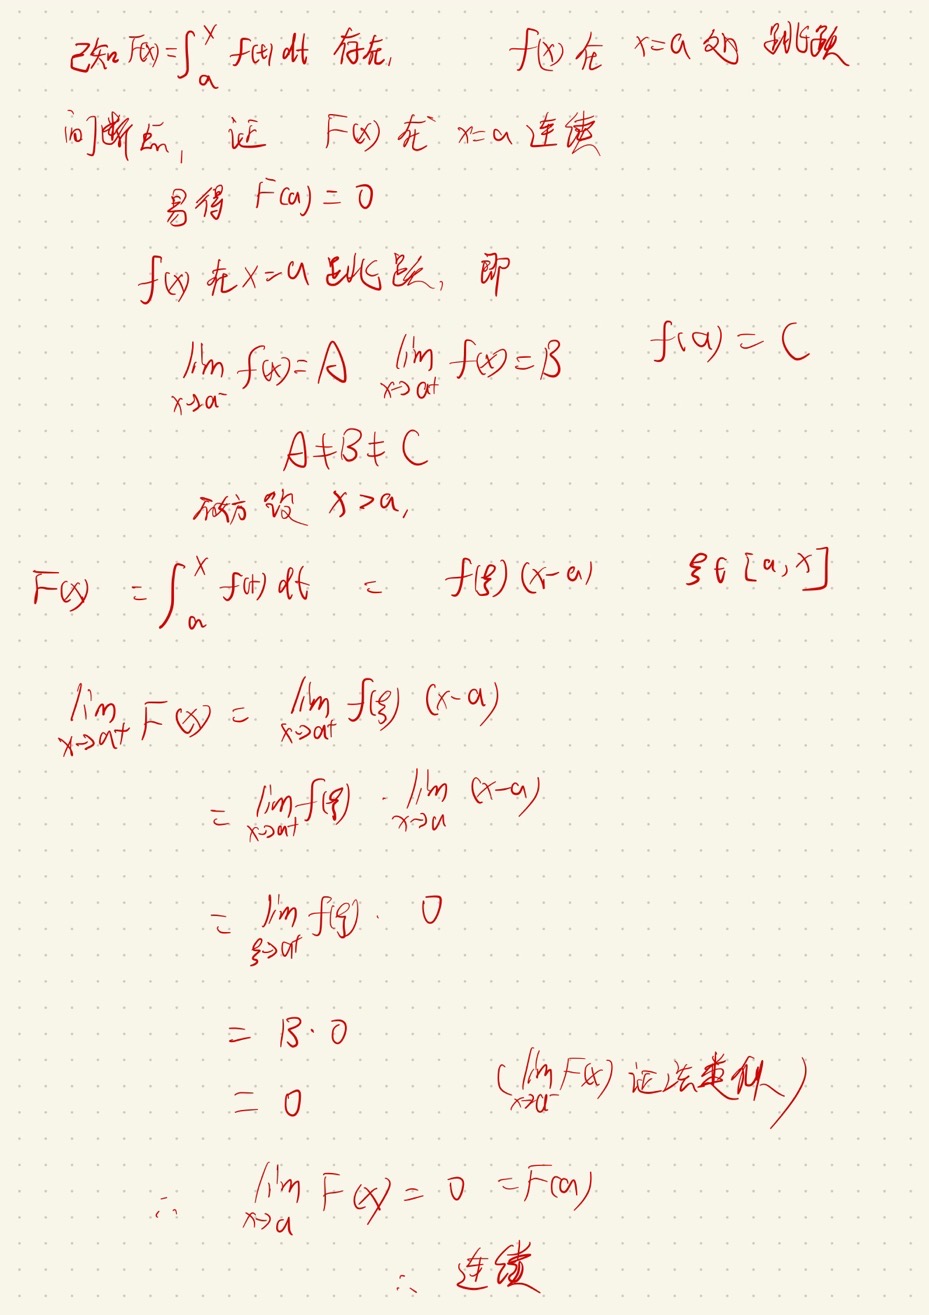 已知 F(x)=∫ₐˣ f(t) dt 存在, f(x) 在 x=a 处 跳跃
间断点, 证 F(x) 在 x=a 连续
易得 F(a)=0
f(x) 在 x=a 跳跃, 即
lim_{x→a⁻} f(x)=A lim_{x→a⁺} f(x)=B f(a)=C
A≠B≠C
不妨设 x>a,
F(x) = ∫ₐˣ f(t) dt = f(ξ)(x-a) ξ∈[a,x]
lim_{x→a⁺} F(x) = lim_{x→a⁺} f(ξ) (x-a)
= lim_{x→a⁺} f(ξ) · lim_{x→a} (x-a)
= lim_{ξ→a⁺} f(ξ) · 0
= B·0
= 0 (lim_{x→a⁻} F(x) 证法类似)
∴ lim_{x→a} F(x) = 0 = F(a)
∴ 连续